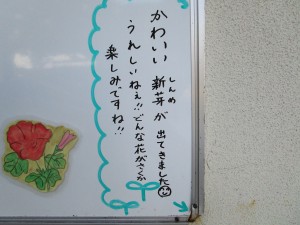 かわいい 新芽が 出てきました
しんめ
うれしいねぇ!!どんな花がさくか
楽しみですね!!